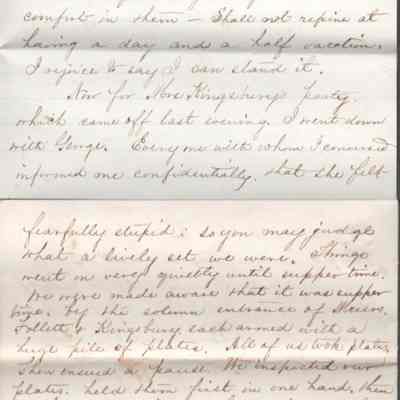 comfort in them – Shall not repine at
having a day and a half vacation.
I rejoice to say I can stand it.
Now for Mrs Kingsbury's party.
which came off last evening. I went down
with George. Every one with whom I conversed
informed me confidentially, that she felt
fearfully stupid; so you may judge
what a lively set we were. Things
went on very quietly until supper time.
We were made aware that it was supper
time, by the solemn entrance of Messrs.
Follett & Kingsbury each armed with a
huge pile of plates. All of us took plates,
then ensued a pause. We inspected our
plates. held them first in one hand, then